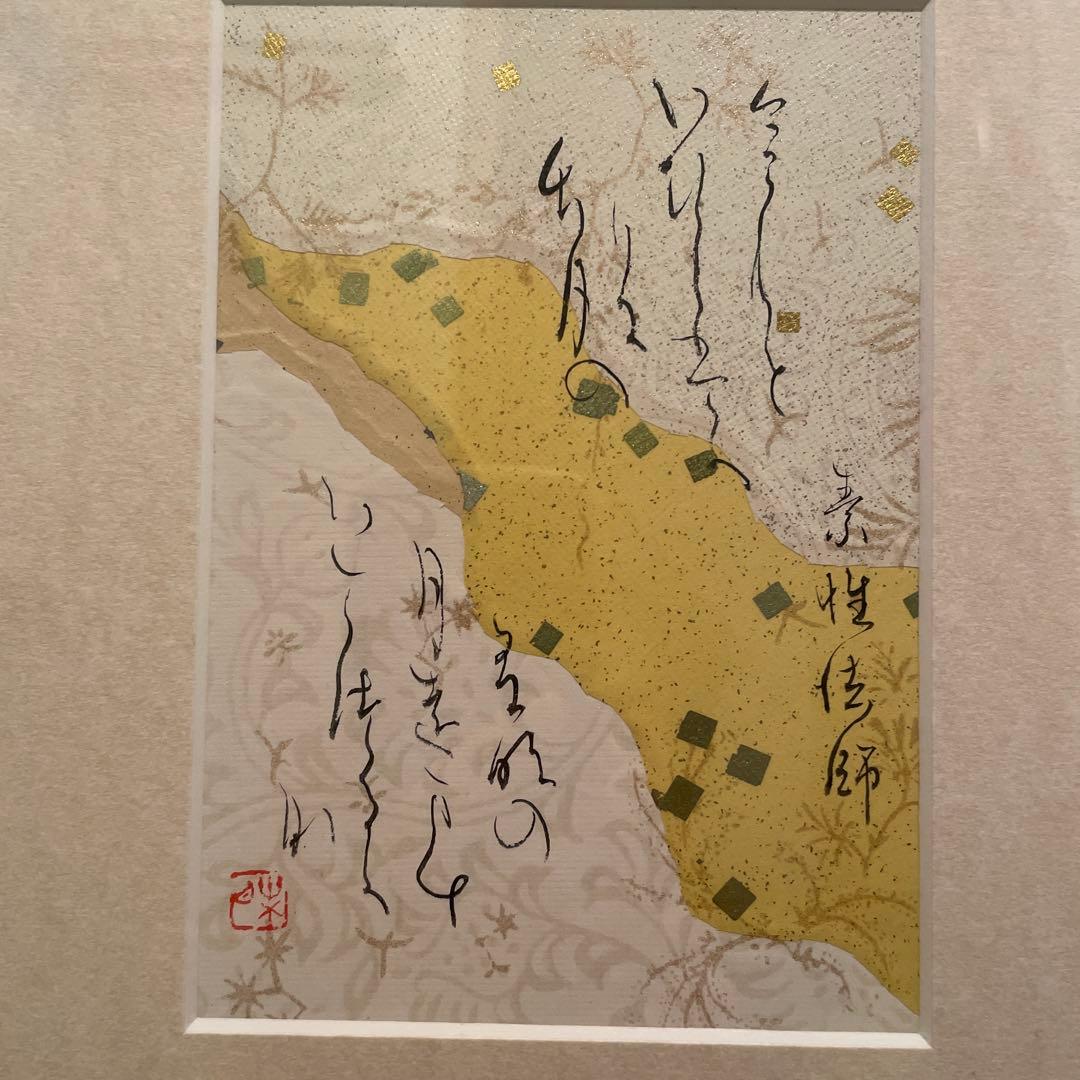 素性法師
今こむと
いひしはか
りに
なか月の
有明の
月をまち
いてつるか
な